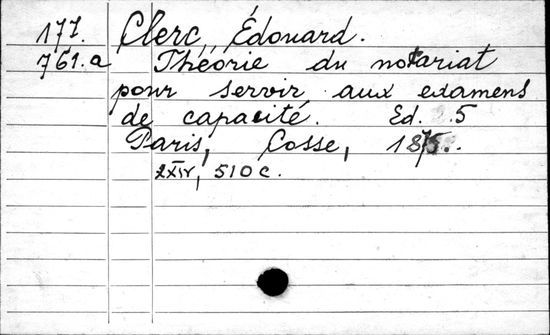 177. Clerc, Édouard.
761.a Théorie du notariat
pour servir aux examens
de capacité. Ed. 5
Paris, Cosse,
510 c.